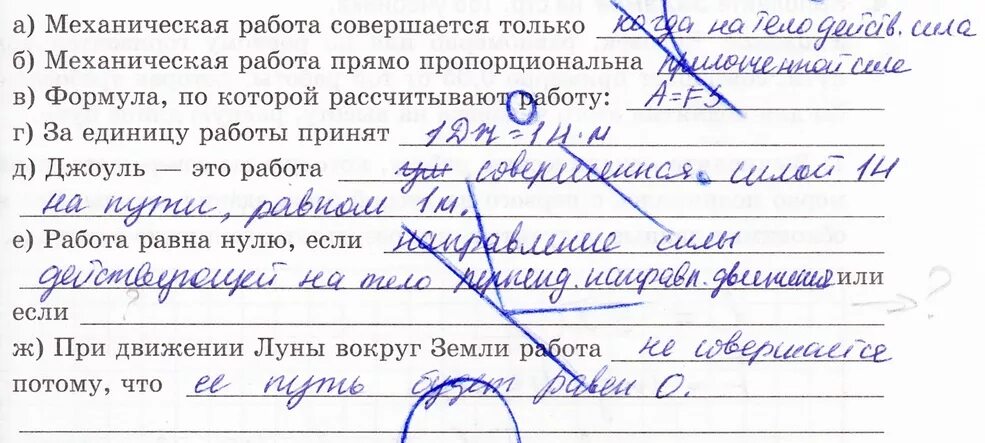 а) Механическая работа совершается только когда на тело действ. сила
б) Механическая работа прямо пропорциональна приложенной силе
в) Формула, по которой рассчитывают работу: A=FS
г) За единицу работы принят 1Дж=1Н·м
д) Джоуль — это работа совершенная силой 1Н
на пути, равном 1м.
е) Работа равна нулю, если направление силы
действующей на тело перпенд. направл. движения или
если
ж) При движении Луны вокруг Земли работа не совершается
потому, что ее путь будет равен 0.
?